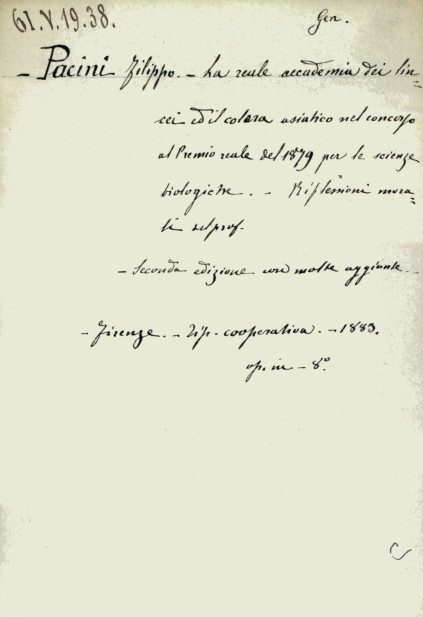 61.V.19.38.
Gen.
- Pacini Filippo. - La reale accademia dei lin=
cei ed il colera asiatico nel concorso
al Premio reale del 1879 per le scienze
biologiche. - Riflessioni mora=
li del prof.
- Seconda edizione con molte aggiunte. -
- Firenze. - Tip. cooperativa. - 1883.
op. in - 8.°